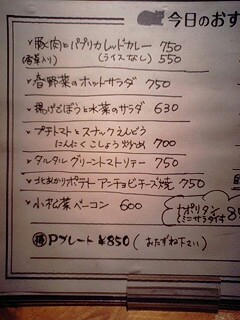 今日のおす
豚肉とパプリカレッドカレー 750
(ライスなし) 550
春野菜のホットサラダ 750
揚げごぼうと水菜のサラダ 630
プチトマトとスナックえんどう
にんにくこしょう炒め 700
タルタルグリーントマトソテー 750
北あかりポテト アンチョビチーズ焼 750
小松菜ベーコン 600
ナポリタン
(ミニサラダ付
Pプレート ¥850 (おたずね下さい)